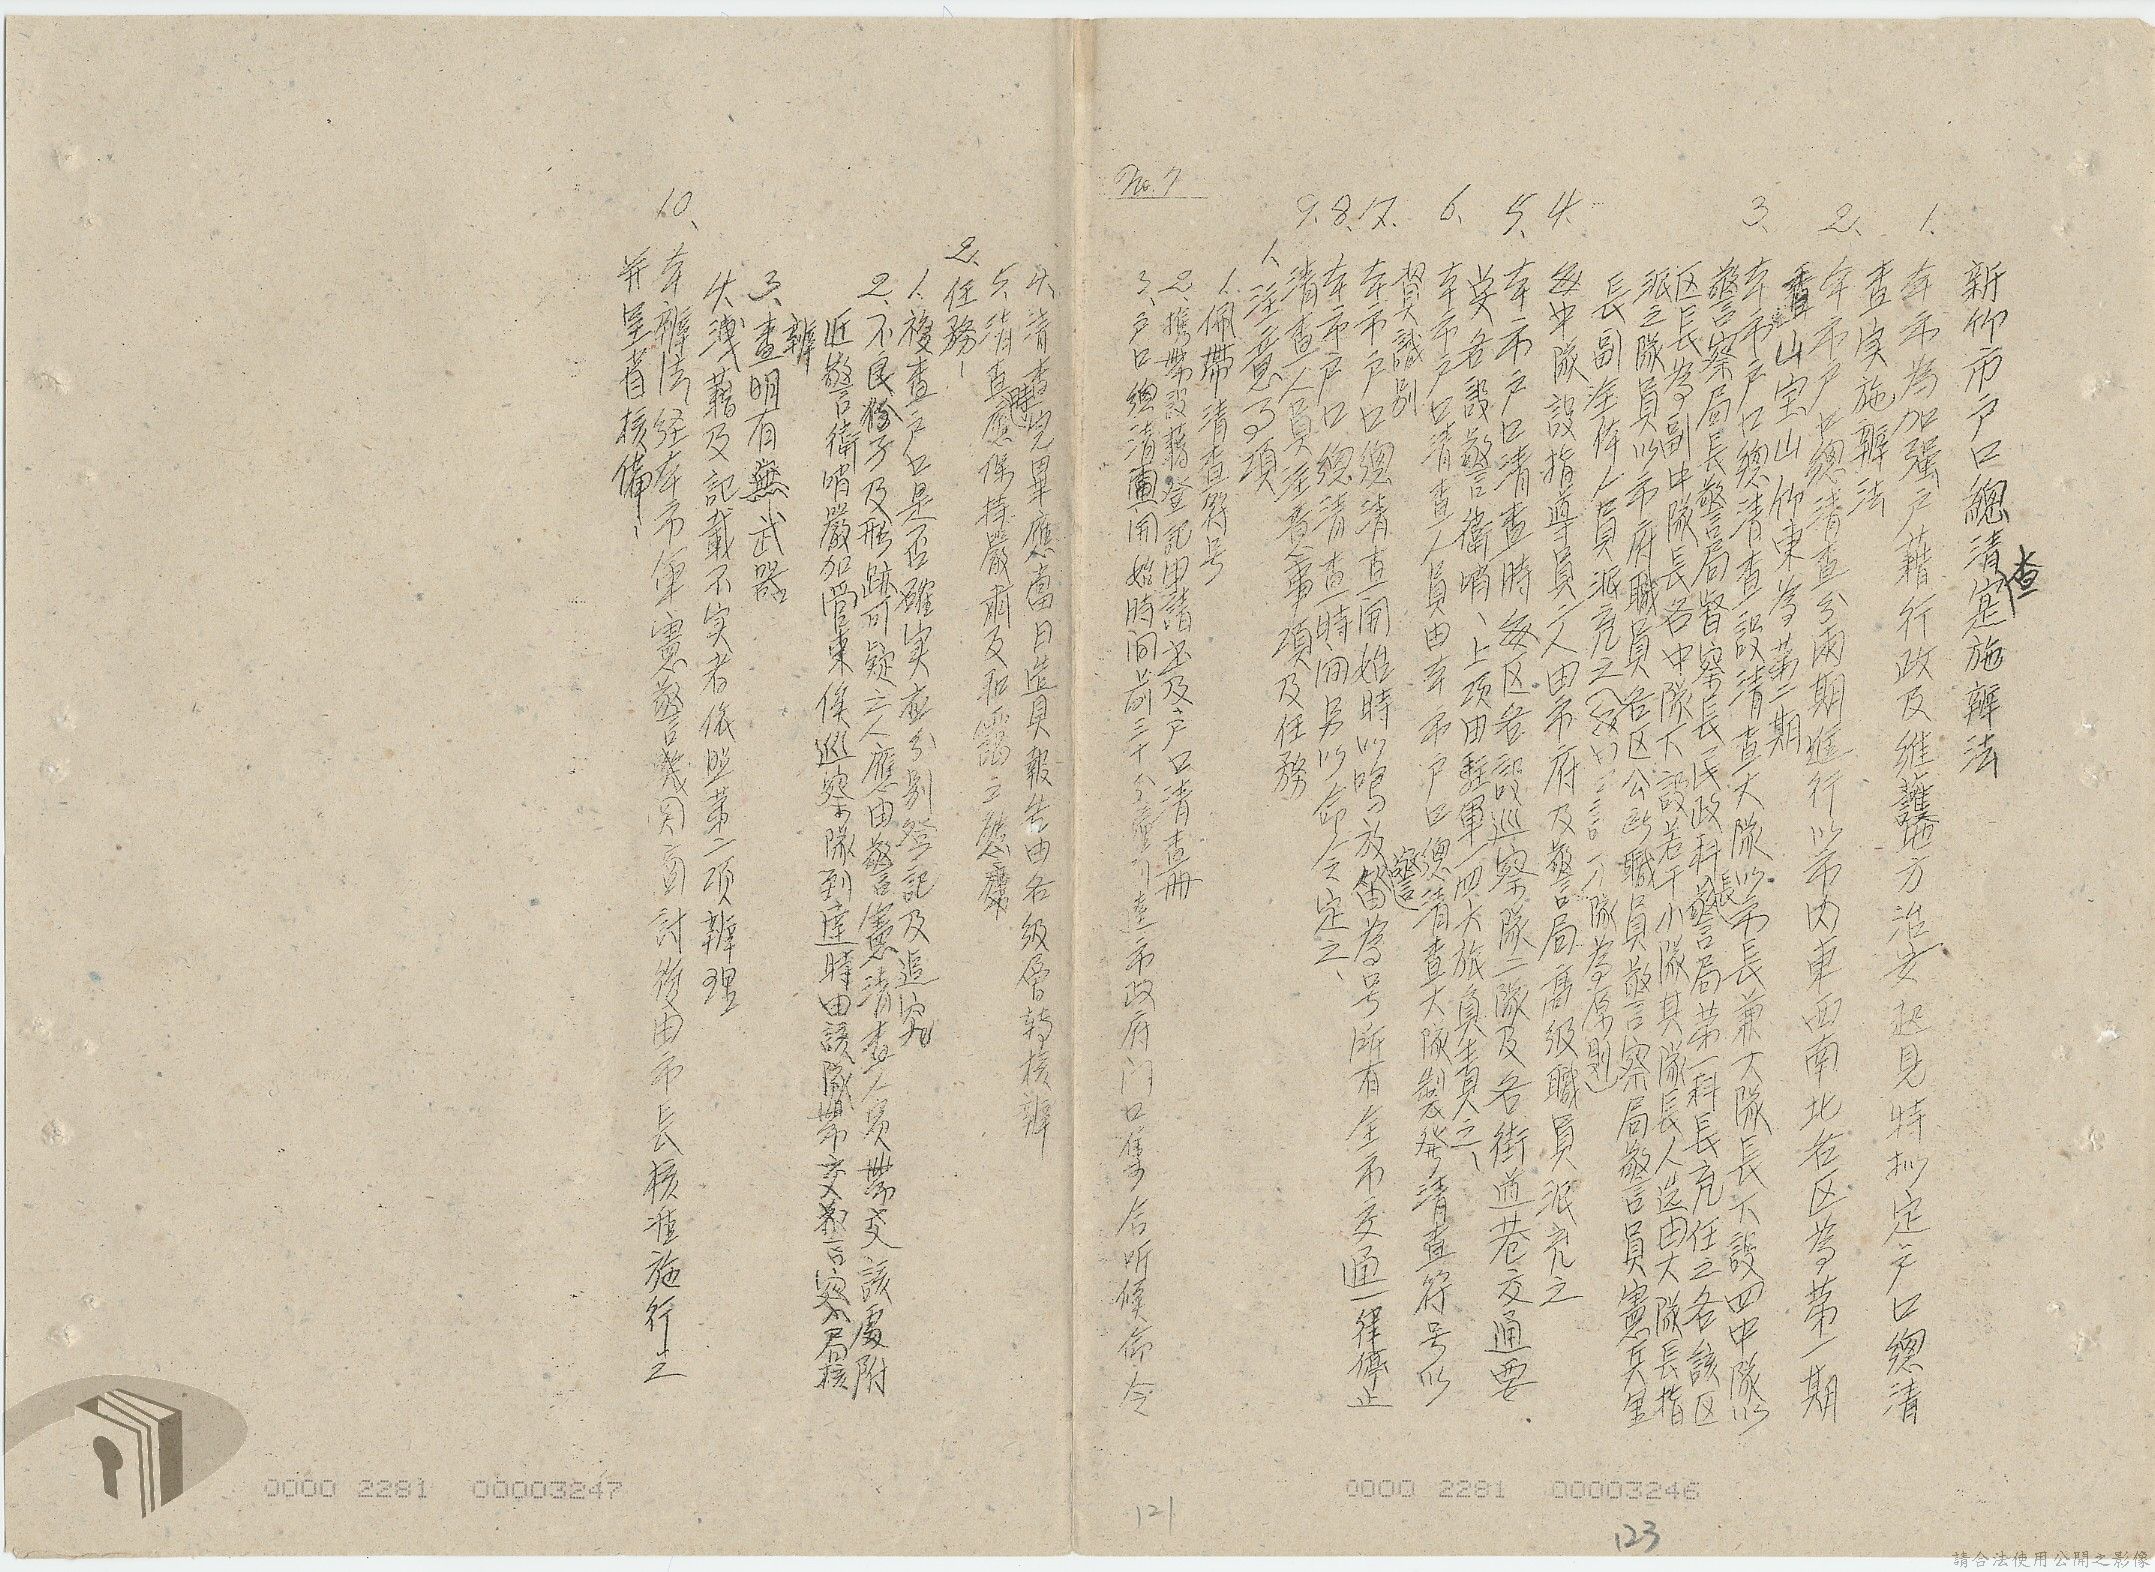 新竹市戶口總清查实施辦法
1. 本市為加强戶籍行政及維護地方治安起見特拟定戶口總清
查实施辦法
2、本市戶口總清查分兩期進行以市内東西南北各区為第一期
香山宝山竹東為第二期
3、本市戶口總清查設清查大隊以市長兼大隊長下設四中隊以
警察局長警局督察長民政科長警局第一科長充任之各該区
区長為副中隊長各中隊下設若干小隊其隊長人选由大隊長指
派之隊員以市府職員各区公所職員警察局警員憲兵里
長副至体人員派充之 隊為原則
4. 每中隊設指導員一人由市府及警局高級職員派充之
5、本市戶口清查時每区各設巡察隊二隊及各街道巷交通要
点各設警衛哨、上项由駐軍一四大旅負責之、
6、本市戶口清查人員由本市戶口總清查大隊製発清查符号以
資識別
7. 本市戶口總清查開始時以鳴放警笛為号所有全市交通一律停止
8. 本市戶口總清查時間另以命令定之、
9. 清查人員注意事項及任務
1、注意事項
1. 佩帶清查符号
2. 携帶設籍登記申請书及戶口清查冊
3、戶口總清查開始時间前三十分 市政府门口集合听候命令
No. 7
4、清查完畢應當日造具報告由各級層轉核辦
5、清查時應保持嚴肅及和藹之態度
2、任務、
1. 複查戶口是否確实並分別登記及追究
2、不良份子及形跡可疑之人應由警憲清查人員帶交該處附
近警衛哨嚴加管束候巡察隊到達時由該隊帶交警察局核
辦
3、查明有無武器
4. 漏籍及記載不实者依照第二项辦理
10、本辦法经本市軍憲警機関商討後由市長核准施行之
并呈省核備、
0000 2281 00003247
0000 2281 00003246
121
123
請合法使用公開之影像